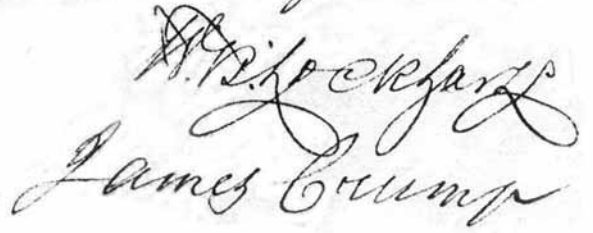 W. B. Lockhart
James Crump